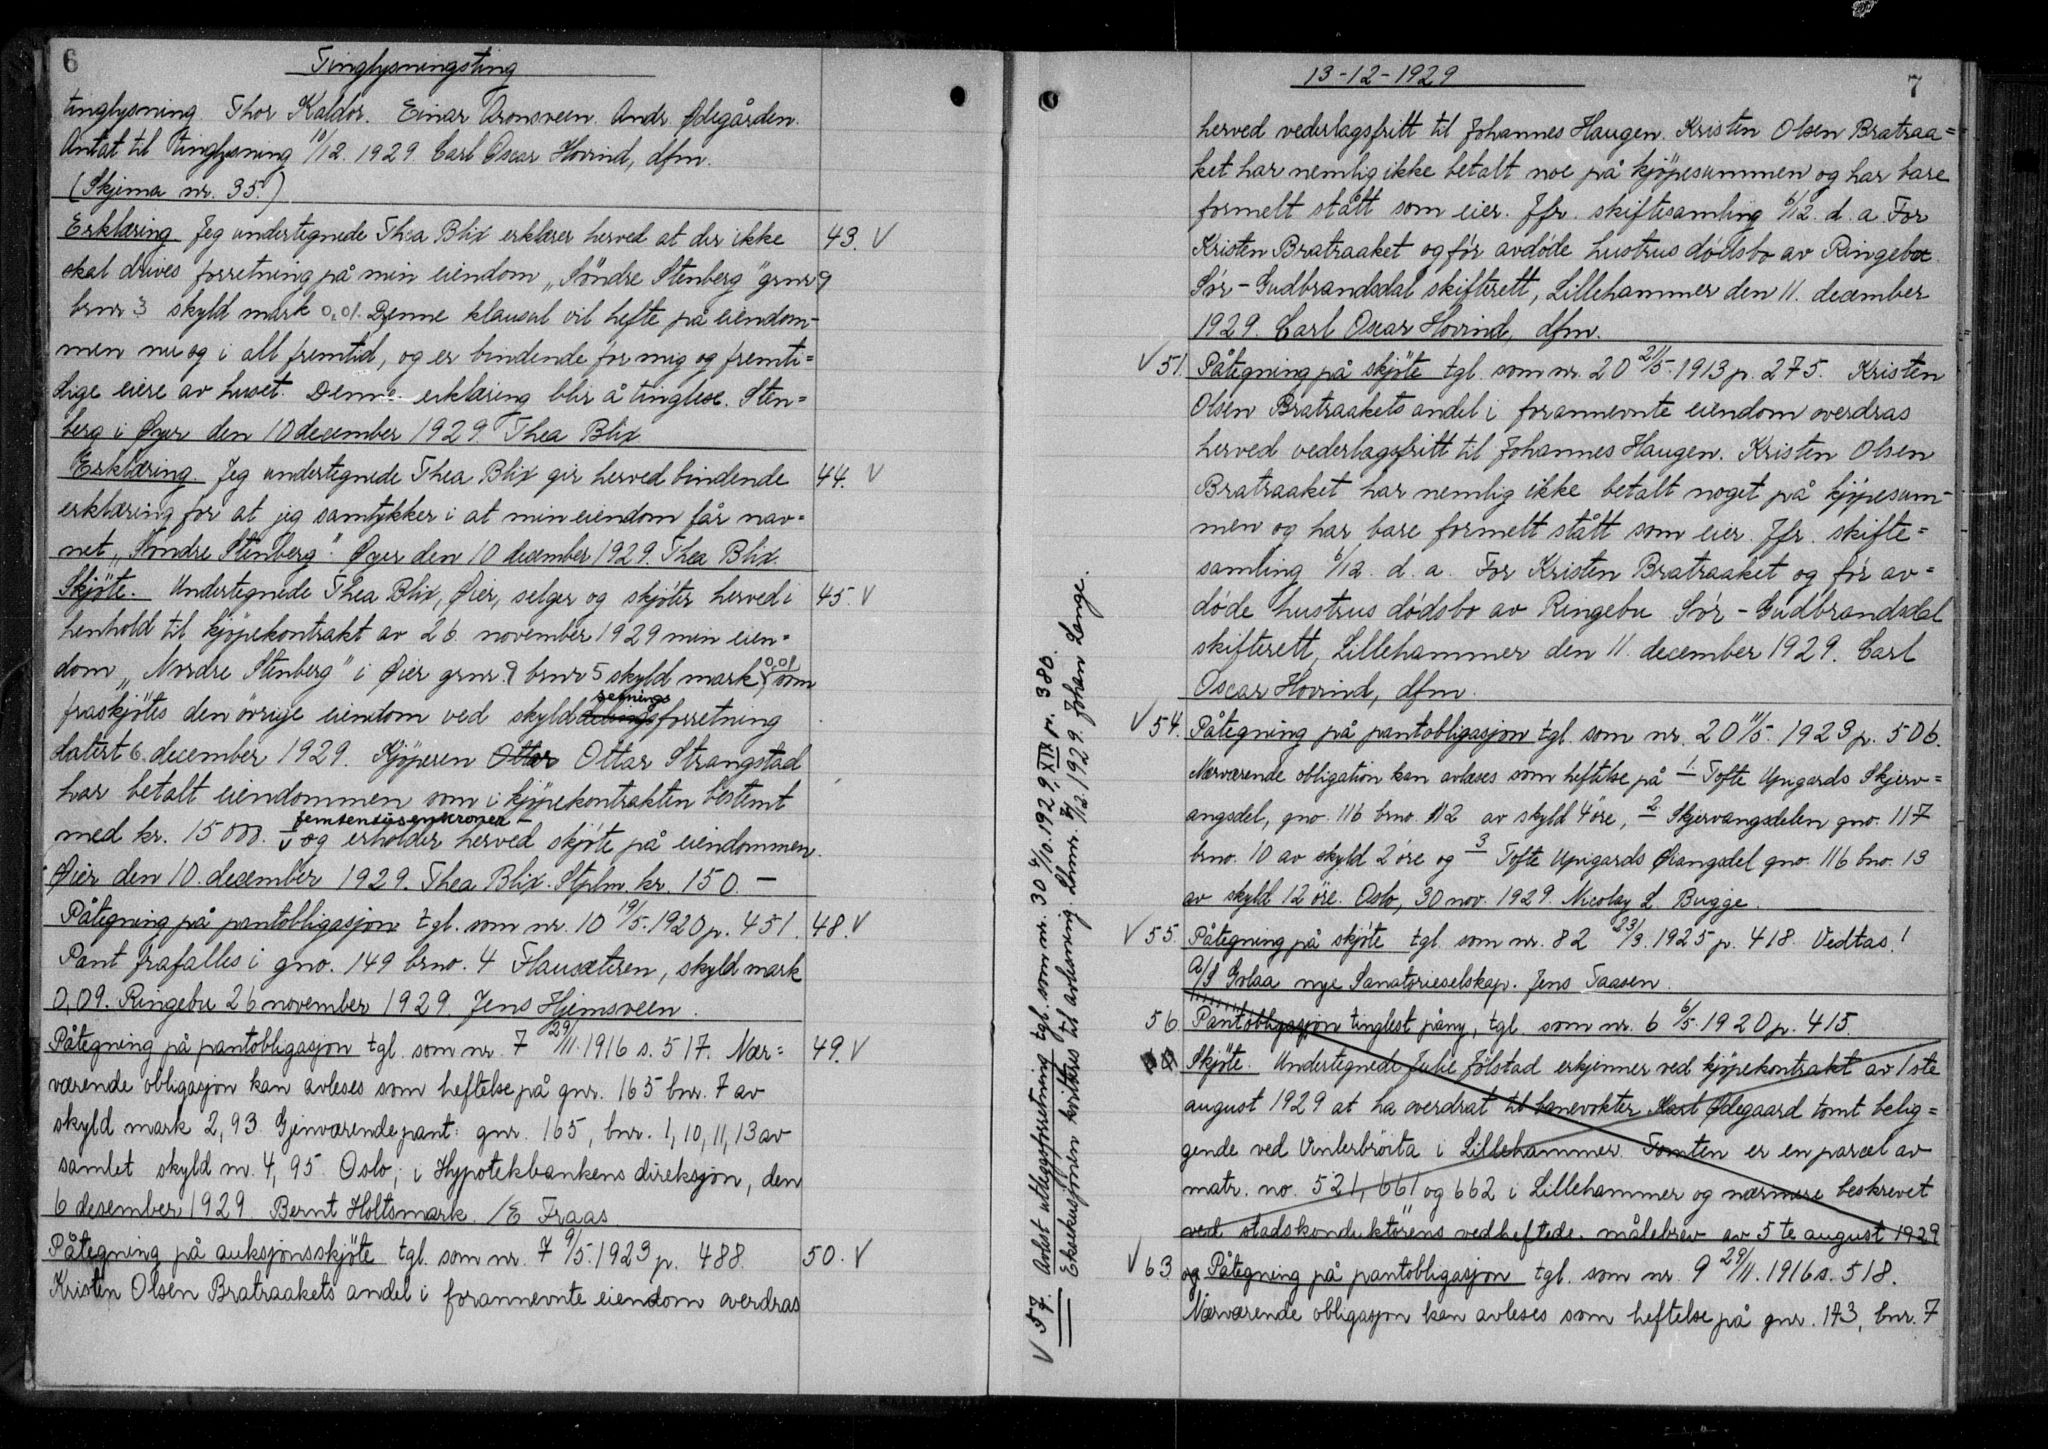 6
Tinglysningsting
tinglysning. Thor Kaldor. Einar Aronsveen. Andr. Ødegården.
Antat til tinglysning 10/12. 1929. Carl Oscar Hovind, dfm.
(Skjema nr. 35.)
Erklæring. Jeg undertegnede Thea Blix erklærer herved at der ikke 43. V
skal drives forretning på min eiendom „Söndre Stenberg" grnr 9
brnr 3 skyld mark 0,01. Denne klausul vil hefte på eiendom-
men nu og i all fremtid, og er bindende for mig og fremti=
dige eiere av huset. Denne erklæring blir å tinglese. Sten=
berg i Øyer den 10 december 1929. Thea Blix
Erklæring. Jeg undertegnede Thea Blix gir herved bindende 44. V
erklæring for at jeg samtykker i at min eiendom får nav=
net „Søndre Stenberg". Øyer den 10 december 1929. Thea Blix.
Skjöte. Undertegnede Thea Blix, Øier, selger og skjöter herved i 45. V
henhold til kjöpekontrakt av 26. november 1929 min eien=
dom „Nordre Stenberg" i Øier grnr. 9 brnr 5 skyld mark 0,01 som
fraskjötes den övrige eiendom ved skylddelingssetningsforretning
datert 6. december 1929. Kjöperen Ottar Ottar Strangstad
har betalt eiendommen som i kjöpekontrakten bestemt
med kr. 15000.- femtentusenkroner - og erholder herved skjöte på eiendommen.
Øier den 10. december 1929. Thea Blix. Stplm. kr. 150.-
Påtegning på pantobligasjon tgl. som nr. 10 19/5. 1920 p. 451. 48. V
Pant frafalles i gno. 149 brno. 4 Flausæteren, skyld mark
0,09. Ringebu 26 november 1929. Jens Hjemsveen.
Påtegning på pantobligasjon tgl. som nr. 7 29/11. 1916 s. 517. Nær= 49. V
værende obligasjon kan avleses som heftelse på gnr. 165 bnr. 7 av
skyld mark 2,93. Gjenværende pant: gnr. 165, bnr. 1, 10, 11, 13 av
samlet skyld m. 4,95. Oslo, i Hypotekbankens direksjon, den
6 desember 1929. Bernt Holtsmark. /E Fraas
Påtegning på auksjonsskjöte tgl. som nr. 7 9/5. 1923 p. 488. 50. V
Kristen Olsen Bratraakets andel i forannevnte eiendom overdras
V 57. Avlest utleggsforretning tgl. som nr. 30 4/10. 1929, XIX nr. 380.
Eksekusjonen kvitteres til avlesning. Lhmr. 7/12. 1929. Johan Lange.
13-12-1929
7
herved vederlagsfritt til Johannes Haugen. Kristen Olsen Bratraa=
ket har nemlig ikke betalt noe på kjöpesummen og har bare
formelt stått som eier. Jfr. skiftesamling 6/12. d. a. For
Kristen Bratraaket og for avdöde hustrus dödsbo av Ringebu.
Sör-Gudbrandsdal skifterett, Lillehammer den 11. december
1929. Carl Oscar Hovind, dfm.
V 51. Påtegning på skjöte tgl. som nr. 20 21/5. 1913 p. 275. Kristen
Olsen Bratraakets andel i forannevnte eiendom overdras
herved vederlagsfritt til Johannes Haugen. Kristen Olsen
Bratraaket har nemlig ikke betalt noget på kjöpesum-
men og har bare formelt stått som eier. Jfr. skifte=
samling 6/12. d. a. For Kristen Bratraaket og for av=
döde hustrus dödsbo av Ringebu Sör-Gudbrandsdal
skifterett, Lillehammer den 11. december 1929. Carl
Oscar Hovind, dfm.
V 54. Påtegning på pantobligasjon tgl. som nr. 20 11/5. 1923 p. 506.
Nærværende obligation kan avleses som heftelse på 1. Tofte Upigards Skjerv=
angsdel, gno. 116 brno. 112 av skyld 4 öre, 2. Skjervangsdelen gno. 117
brno. 10 av skyld 2 öre og 3 Tofte Upigards Öiangsdel gno. 116 bno. 13
av skyld 12 öre. Oslo, 30 nov. 1929. Nicolay L. Bugge.
V 55. Påtegning på skjöte tgl. som nr. 82 23/3. 1925 p. 418. Vedtas!
A/S Golaa nye Sanatorieselskap. Jens Taasen.
56. Pantobligasjon tinglest påny, tgl. som nr. 6 6/5. 1920 p. 415.
Skjöte. Undertegnede Julie Jölstad erkjenner ved kjöpekontrakt av 1ste
august 1929 at ha overdrat til banevokter Karl Ødegaard tomt belig=
gende ved Vinterbröita i Lillehammer. Tomten er en parcel av
matr. no. 521, 661 og 662 i Lillehammer og nærmere beskrevet
ved stadskonduktörens vedheftede målebrev av 5 te august 1929
V 63 og Påtegning på pantobligasjon tgl. som nr. 9 29/11. 1916 s. 518.
Nærværende obligasjon kan avleses som heftelse på gnr. 173, bnr. 7